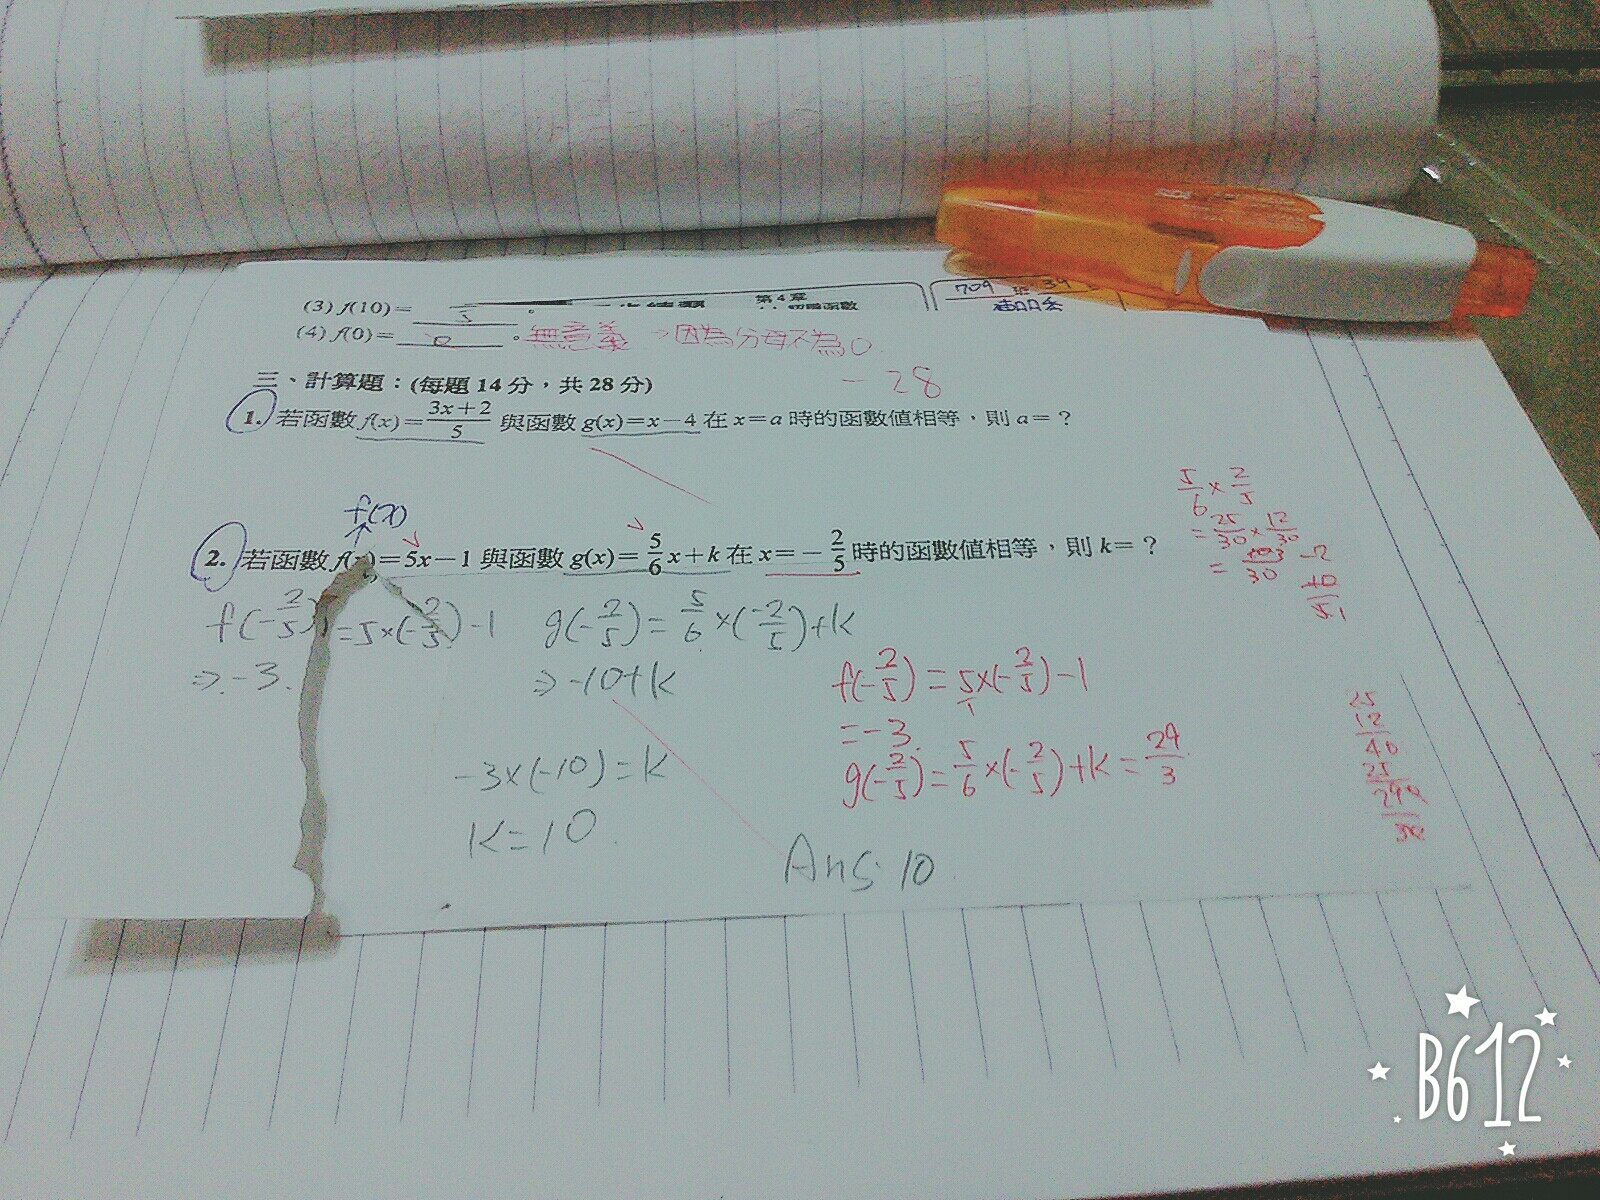 第4章
709 班 39
(3) f(10)= 5 。
(4) f(0)= 0 。無意義 →因為分母不為0
三、計算題：(每題14分，共28分)
-28
1. 若函數 f(x)=\frac{3x+2}{5} 與函數 g(x)=x-4 在 x=a 時的函數值相等，則 a=？
f(x)
2. 若函數 f(x)=5x-1 與函數 g(x)=\frac{5}{6}x+k 在 x=-\frac{2}{5} 時的函數值相等，則 k=？
f(-\frac{2}{5})=5×(-\frac{2}{5})-1
⇒-3.
g(-\frac{2}{5})=\frac{5}{6}×(-\frac{2}{5})+k
⇒-10+k
-3×(-10)=k
k=10.
Ans:10
f(-\frac{2}{5})=\frac{5}{1}×(-\frac{2}{5})-1
=-3.
g(-\frac{2}{5})=\frac{5}{6}×(-\frac{2}{5})+k=\frac{29}{3}
\frac{5}{6}×\frac{2}{5}
=\frac{25}{30}×\frac{12}{30}
25
12
B612